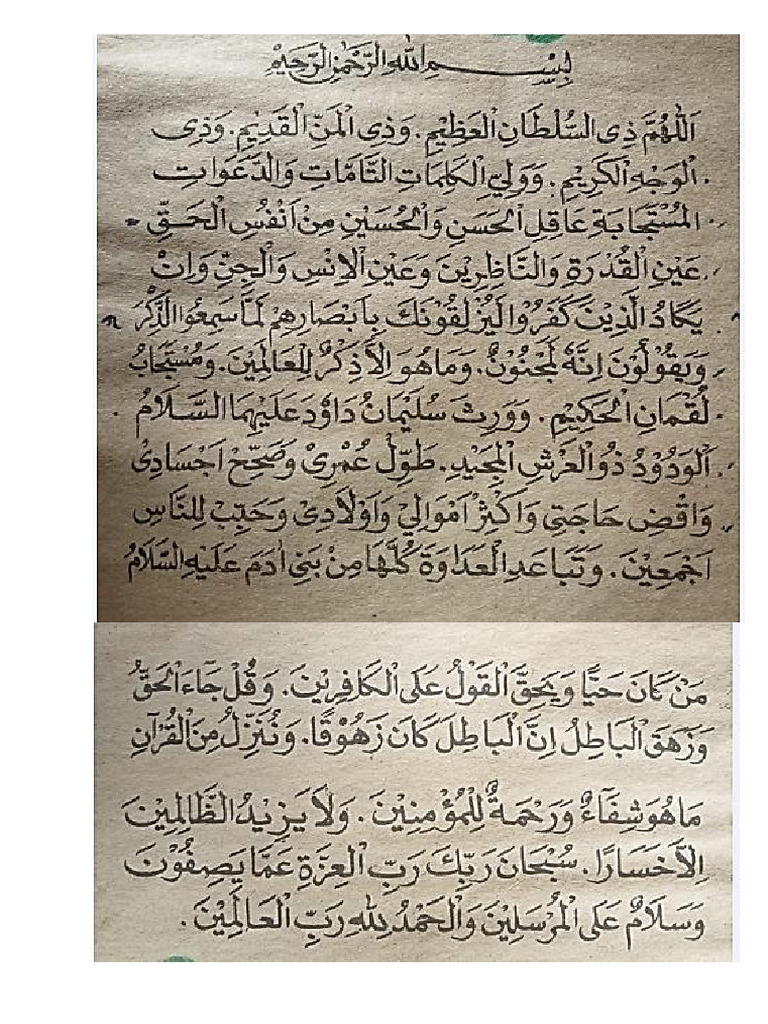 بِسْــــمِ اللهِ الرَّحْمٰنِ الرَّحِيْمِ
اَللّٰهُمَّ ذِى السُّلْطَانِ الْعَظِيْمِ. وَذِى الْمَنِّ الْقَدِيْمِ. وَذِى
الْوَجْهِ الْكَرِيْمِ. وَوَلِيِّ الْكَلِمَاتِ التَّامَّاتِ وَالدَّعَوَاتِ
الْمُسْتَجَابَةِ عَاقِلِ الْحَسَنِ وَالْحُسَيْنِ مِنْ اَنْفُسِ الْحَــقِّ
عَيْنِ الْقُدْرَةِ وَالنَّاظِرِيْنَ وَعَيْنِ الْاِنْسِ وَالْجِنِّ وَاِنْ
يَكَادُ الَّذِيْنَ كَفَرُوْا لَيُزْلِقُوْنَكَ بِاَبْصَارِهِمْ لَمَّا سَمِعُوا الذِّكْرَ
وَيَقُوْلُوْنَ اِنَّهُ لَمَجْنُوْنٌ. وَمَا هُوَ اِلَّا ذِكْرٌ لِلْعَالَمِيْنَ. وَمُسْتَجَابُ
لُقْمَانِ الْحَكِيْمِ. وَوَرِثَ سُلَيْمَانُ دَاوٗدَ عَلَيْهِمَا السَّــلَامُ
اَلْوَدُوْدُ ذُو الْعَرْشِ الْمَجِيْدِ. طَوِّلْ عُمْرِىْ وَصَحِّحْ اَجْسَادِىْ
وَاقْضِ حَاجَتِى وَاَكْثِرْ اَمْوَالِيْ وَاَوْلَادِىْ وَحَبِّبْ لِلنَّاسِ
اَجْمَعِيْنَ. وَتَبَاعَدِ الْعَدَاوَةَ كُلَّهَا مِنْ بَنِى اٰدَمَ عَلَيْهِ السَّلَامُ
مَنْ كَانَ حَيًّا وَيَحِقَّ الْقَوْلُ عَلَى الْكَافِرِيْنَ. وَقُلْ جَاءَ الْحَقُّ
وَزَهَقَ الْبَاطِلُ اِنَّ الْبَاطِلَ كَانَ زَهُوْقًا. وَنُنَزِّلُ مِنَ الْقُرْآنِ
مَا هُوَ شِفَاءٌ وَرَحْمَةٌ لِلْمُؤْمِنِيْنَ. وَلَا يَزِيْدُ الظَّالِمِيْنَ
اِلَّا خَسَارًا. سُبْحَانَ رَبِّكَ رَبِّ الْعِزَّةِ عَمَّا يَصِفُوْنَ
وَسَلَامٌ عَلَى الْمُرْسَلِيْنَ وَالْحَمْدُ لِلّٰهِ رَبِّ الْعَالَمِيْنَ.